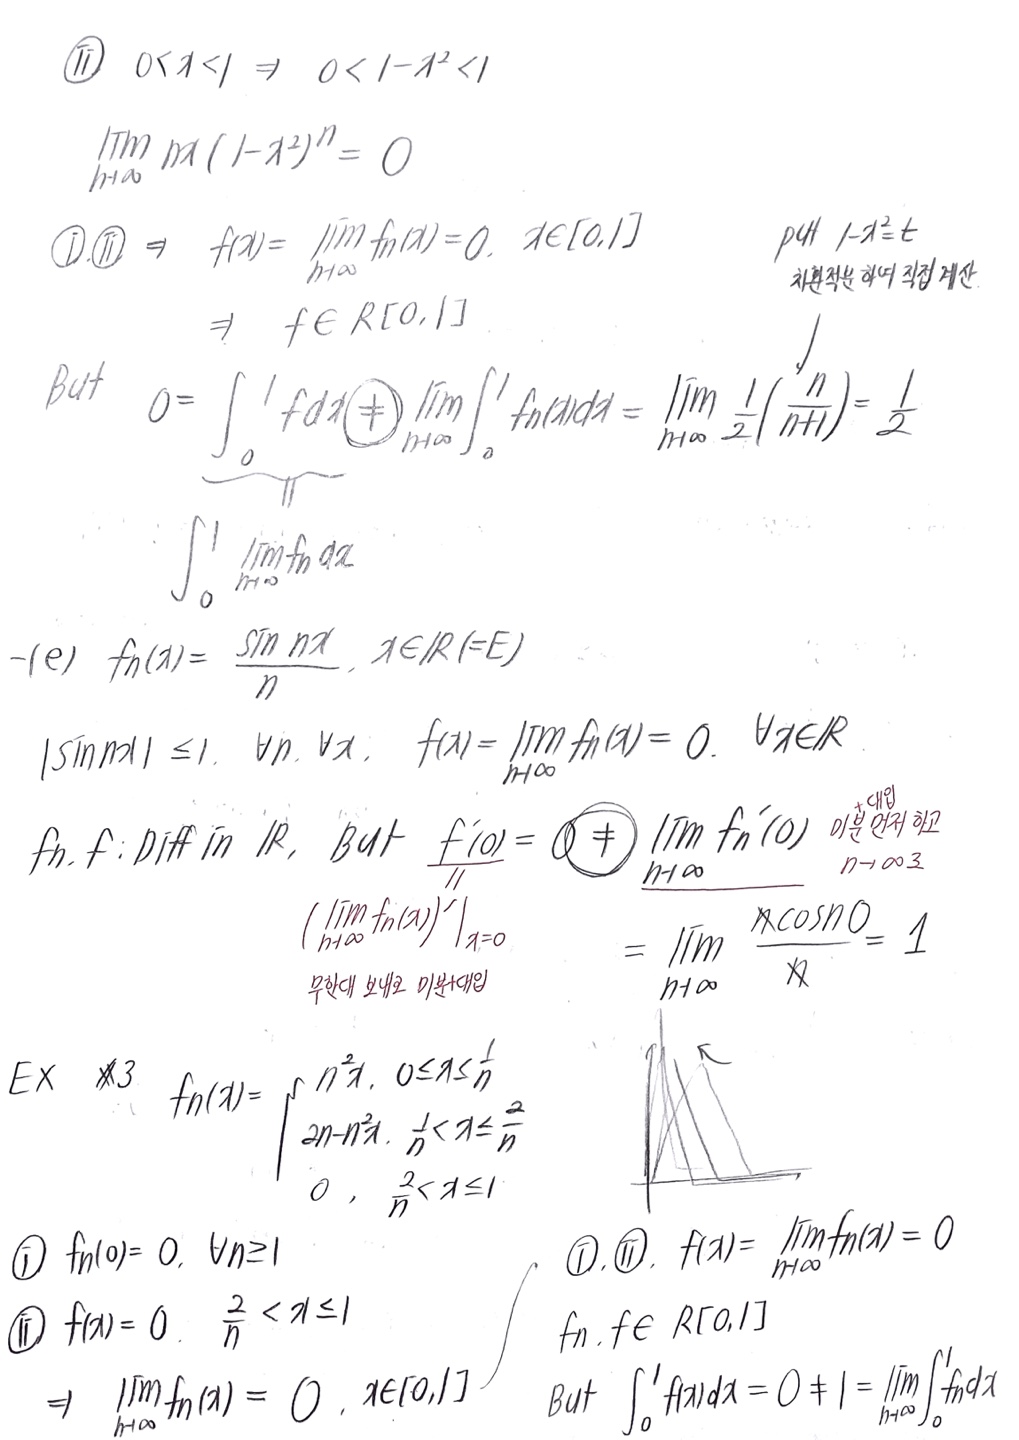 ⅱ 0<x<1 ⇒ 0<1-x²<1
lim n→∞ nx(1-x²)ⁿ = 0
ⅰ.ⅱ ⇒ f(x)= lim n→∞ fn(x)=0. x∈[0,1]
put 1-x²=t
치환적분 하여 직접 계산.
⇒ f∈R[0,1]
But 0= ∫₀¹ fdx ≠ lim n→∞ ∫₀¹ fn(x)dx = lim n→∞ 1/2 (n/(n+1)) = 1/2
||
∫₀¹ lim n→∞ fn dx
-(e) fn(x)= sin nx / n . x∈ℝ(=E)
|sin nx| ≤1. ∀n. ∀x. f(x)= lim n→∞ fn(x)= 0. ∀x∈ℝ.
fn. f : Diff in ℝ, But f′(0)= 0 ≠ lim n→∞ fn′(0)
+대입
미분 먼저 하고
n→∞로
||
(lim n→∞ fn(x))′|x=0
무한대 보내고 미분+대입
= lim n→∞ n cos n0 / n = 1
EX ※3 fn(x)= { n²x. 0≤x≤1/n
2n-n²x. 1/n<x≤2/n
0 , 2/n<x≤1
ⅰ fn(0)= 0. ∀n≥1
ⅱ f(x)= 0. 2/n <x≤1
⇒ lim n→∞ fn(x) = 0 . x∈[0,1]
ⅰ.ⅱ. f(x)= lim n→∞ fn(x)= 0
fn. f∈ R[0,1]
But ∫₀¹ f(x)dx = 0 ≠ 1 = lim n→∞ ∫₀¹ fndx